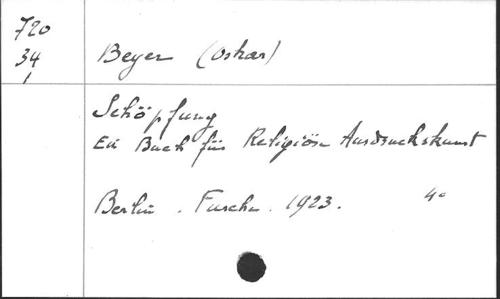 720
34
1
Beyer (Oskar)
Schöpfung
Ein Buch für Religiöse Ausdruckskunst
Berlin . Furche . 1923. 4°